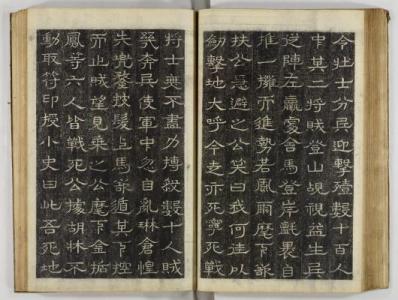 令壯士分兵迎擊殪數十百人
中其二將賊登山覘視益生兵
從陣左羸處舍馬登岸氈裹自
推一擁而進勢若風雨麾下欲
扶公急避之公笑曰我何往以
劒擊地大呼今走亦死寧死戰
將士無不盡力搏殺數十人賊
發奔民使軍中忽自亂琳倉惶
失兜鍪披髮上馬欲遁其下控
而止賊望見乘之公麾下金
鳳等六人皆戰死公據胡牀不
動取符印授小史曰此吾死地